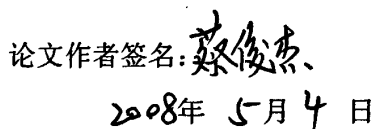 论文作者签名:蔡俊杰
2008年 5月 4 日